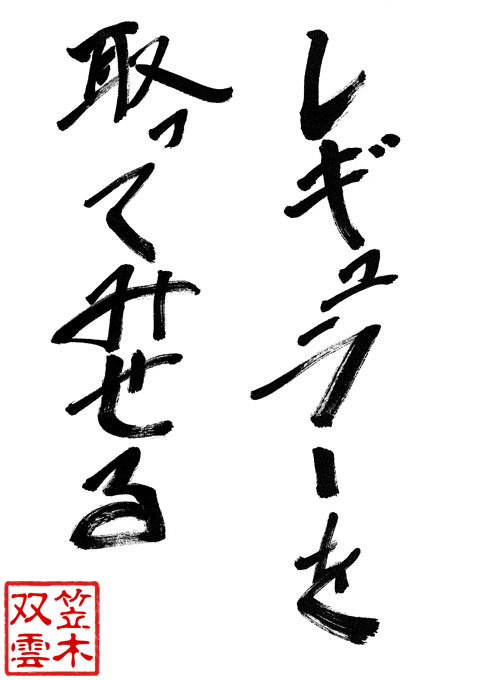 レギュラーを
取ってみせる
笠木
双雲